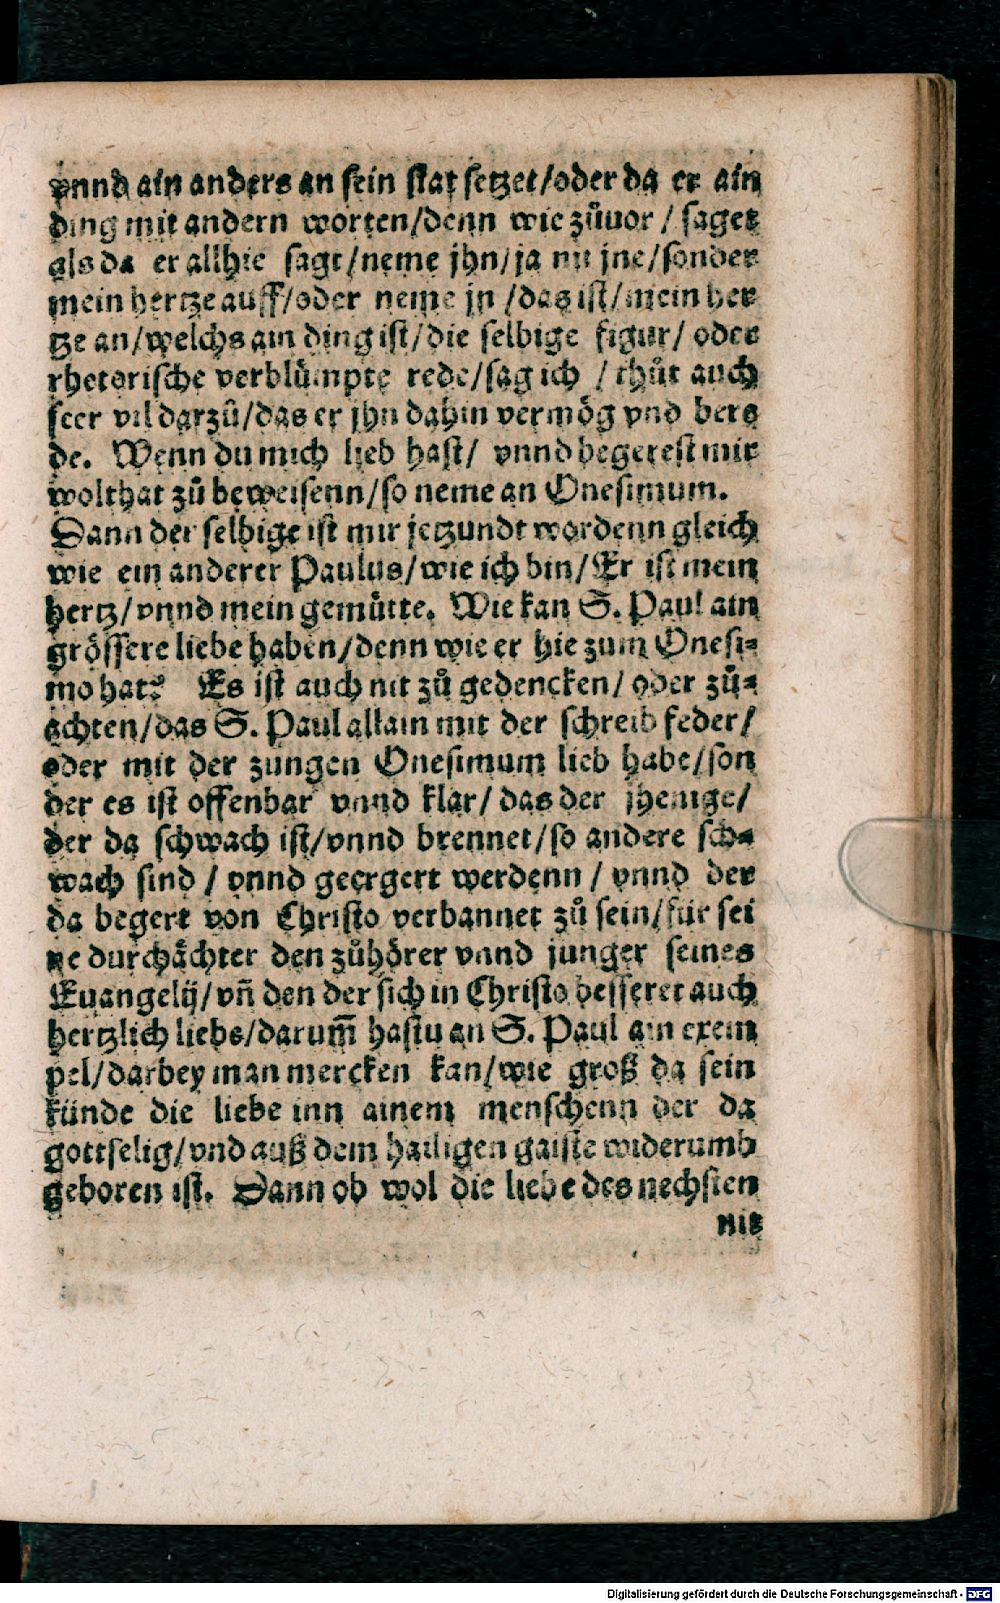 vnnd ain anders an sein stat setzet/oder da er ain
ding mit andern worten/denn wie zůuor / saget
als da er allhie sagt/neme jhn/ja nit jne/sonder
mein hertze auff/oder neme jn /das ist/mein her
tze an/welchs ain ding ist/die selbige figur/ oder
rhetorische verblümpte rede/sag ich / thůt auch
seer vil darzů/das er jhn dahin vermög vnd bere
de. Wenn du mich lieb hast/ vnnd begerest mir
wolthat zů beweisenn/so neme an Onesimum.
Dann der selbige ist mir jetzundt wordenn gleich
wie ein anderer Paulus/wie ich bin/Er ist mein
hertz/vnnd mein gemütte. Wie kan S. Paul ain
grössere liebe haben/denn wie er hie zum Onesi-
mo hat? Es ist auch nit zů gedencken/ oder zů-
achten/das S. Paul allain mit der schreib feder/
oder mit der zungen Onesimum lieb habe/son
der es ist offenbar vnnd klar/ das der jhenige/
der da schwach ist/vnnd brennet/so andere sch-
wach sind / vnnd geergert werdenn / vnnd der
da begert von Christo verbannet zů sein/für sei
ne durchächter den zůhörer vnnd junger seines
Euangelij/vn̄ den der sich in Christo besseret auch
hertzlich liebe/darum̄ hastu an S. Paul ain exem
pel/darbey man mercken kan/wie groß da sein
künde die liebe inn ainem menschenn der da
gottselig/vnd auß dem hailigen gaiste widerumb
geboren ist. Dann ob wol die liebe des nechsten
nit
Digitalisierung gefördert durch die Deutsche Forschungsgemeinschaft - DFG